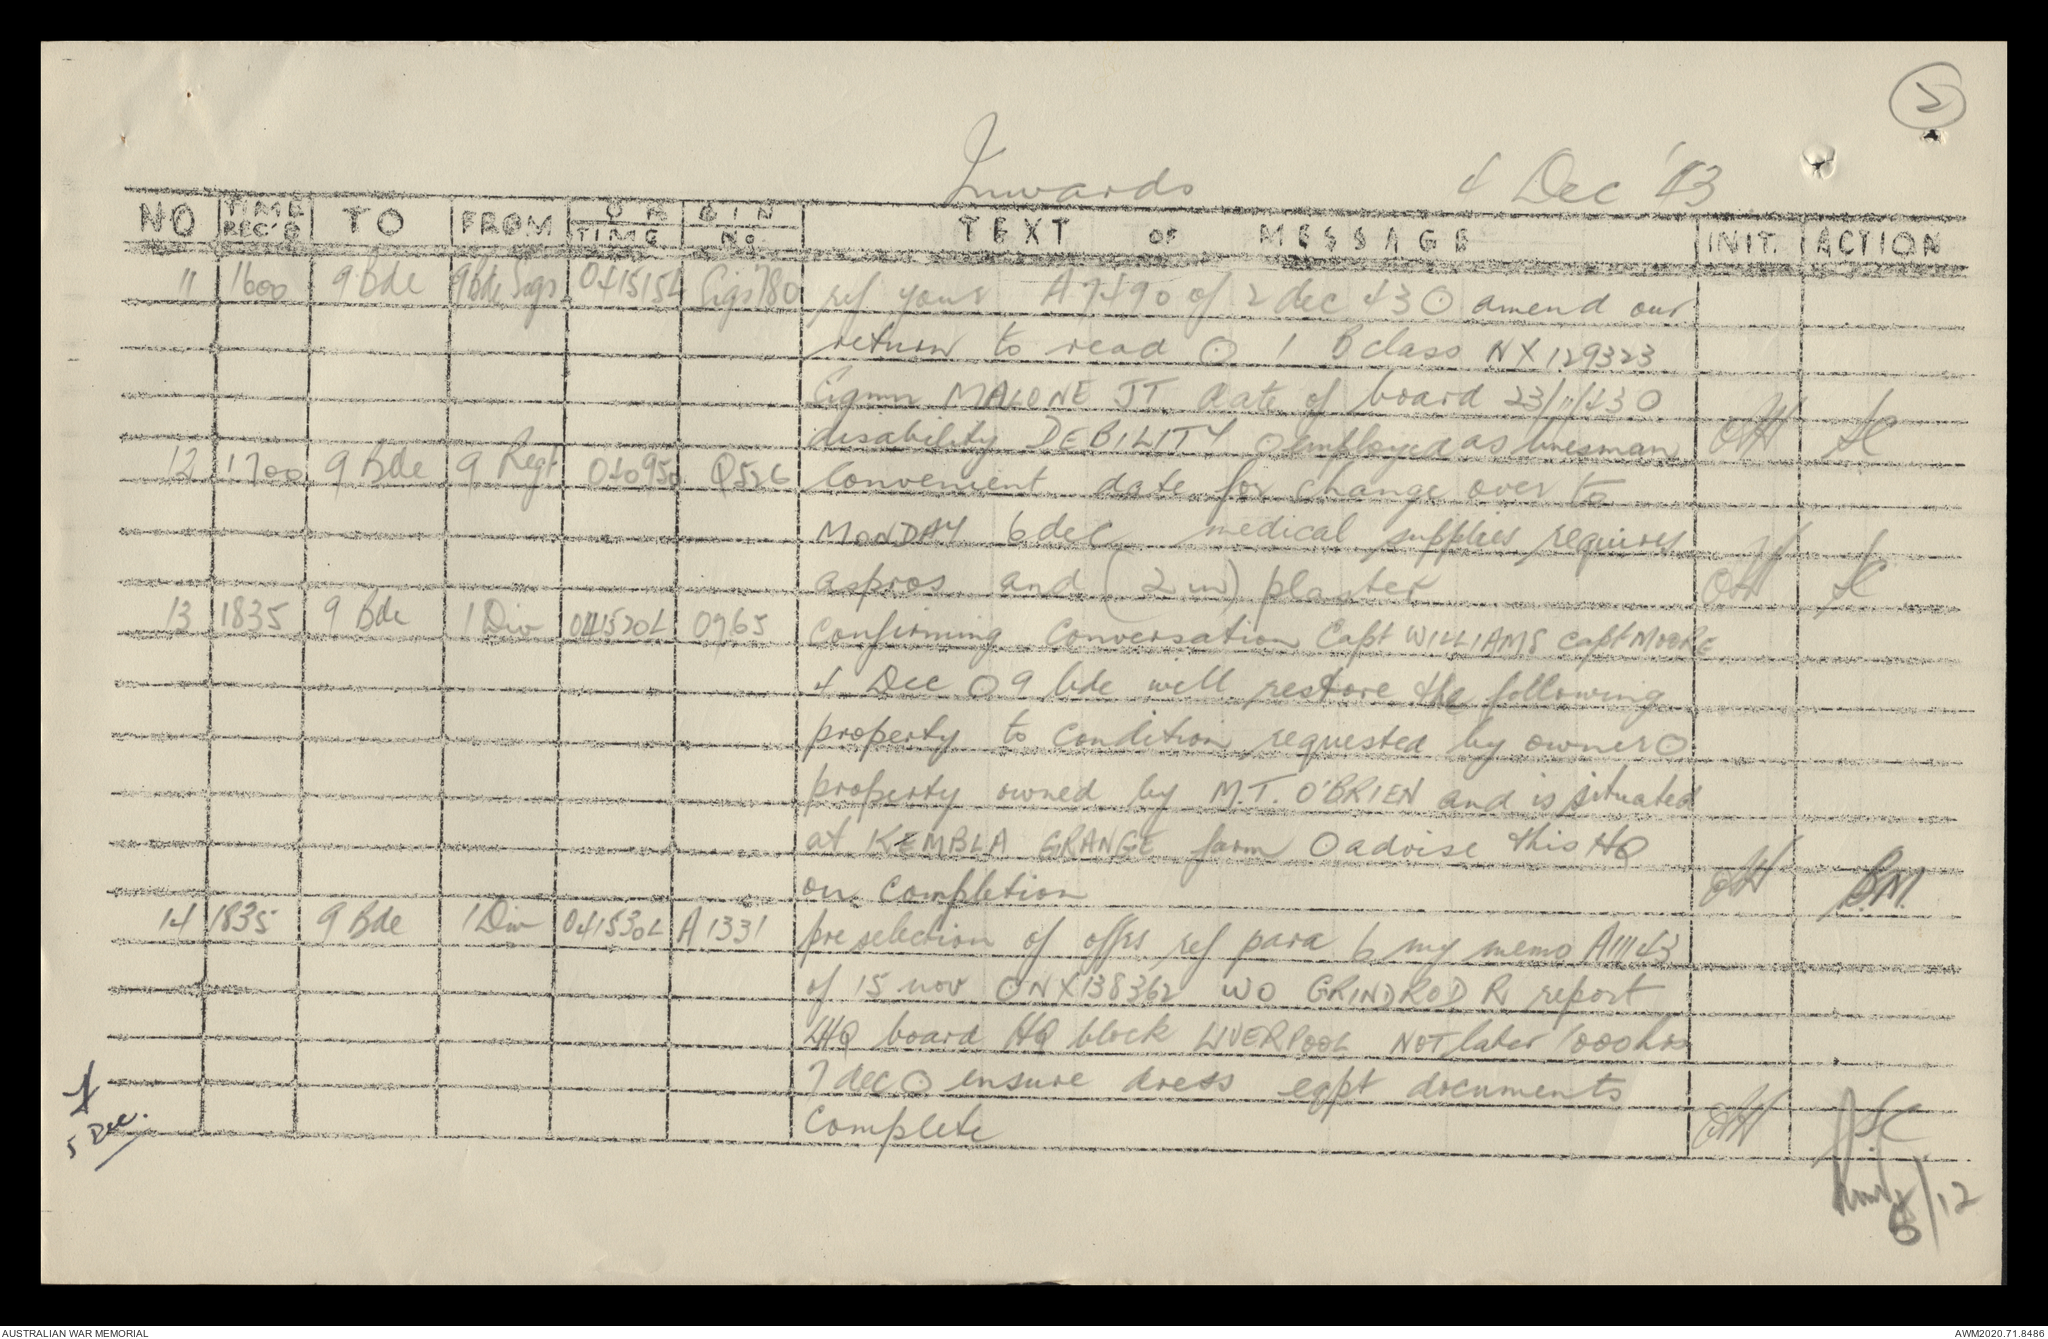 2
Inwards 4 Dec '43
NO TIME REC'D TO FROM O R TIME G I N No TEXT OF MESSAGE INIT. ACTION
11 1600 9 Bde 9 Bde Sigs 041515L Sigs 780 ref your A7490 of 2 dec 43 O amend our
return to read O 1 B class NX129323
Sigmn MALONE JT date of board 23/11/43 O
disability DEBILITY O employed as linesman OH SC
12 1700 9 Bde 9 Regt 040950 Q526 Convenient date for change over to
MONDAY 6 dec medical supplies required
aspros and (2 in) plaster OH SC
13 1835 9 Bde 1 Div 041520L 0965 Confirming Conversation Capt WILLIAMS capt MOORE
4 Dec O 9 bde will restore the following
property to condition requested by owner O
property owned by M.T. O'BRIEN and is situated
at KEMBLA GRANGE farm O advise this HQ
on completion OH B.M.
14 1835 9 Bde 1 Div 041530L A1331 pre selection of offrs ref para 6 my memo A11143
of 15 nov O NX138362 WO GRINDROD R report
LHQ board HQ block LIVERPOOL NOT later 1000hrs
7 dec O ensure dress eqpt documents
Complete OH SC
5 Dec.
6/12
AUSTRALIAN WAR MEMORIAL AWM2020.71.8486